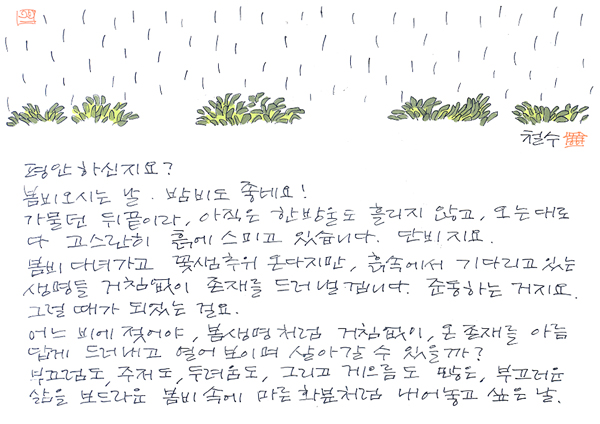 철수
평안하신지요?
봄비오시는 날. 밤비도 좋네요!
가물던 뒤끝이라, 아직은 한방울도 흘리지 않고, 오는대로
다 고스란히 흙에 스미고 있습니다. 단비지요.
봄비 다녀가고 꽃샘추위 온다지만, 흙속에서 기다리고 있는
생명들 거침없이 존재를 드러낼겝니다. 준동하는 거지요.
그럴 때가 되었는 걸요.
어느 비에 젖어야, 봄생명처럼 거침없이, 온존재를 아름
답게 드러내고 열어보이며 살아갈 수 있을까?
부끄럼도, 주저도, 두려움도, 그리고 게으름도 많은, 부끄러운
삶을 보드라운 봄비 속에 마른 화분처럼 내어놓고 싶은 날.